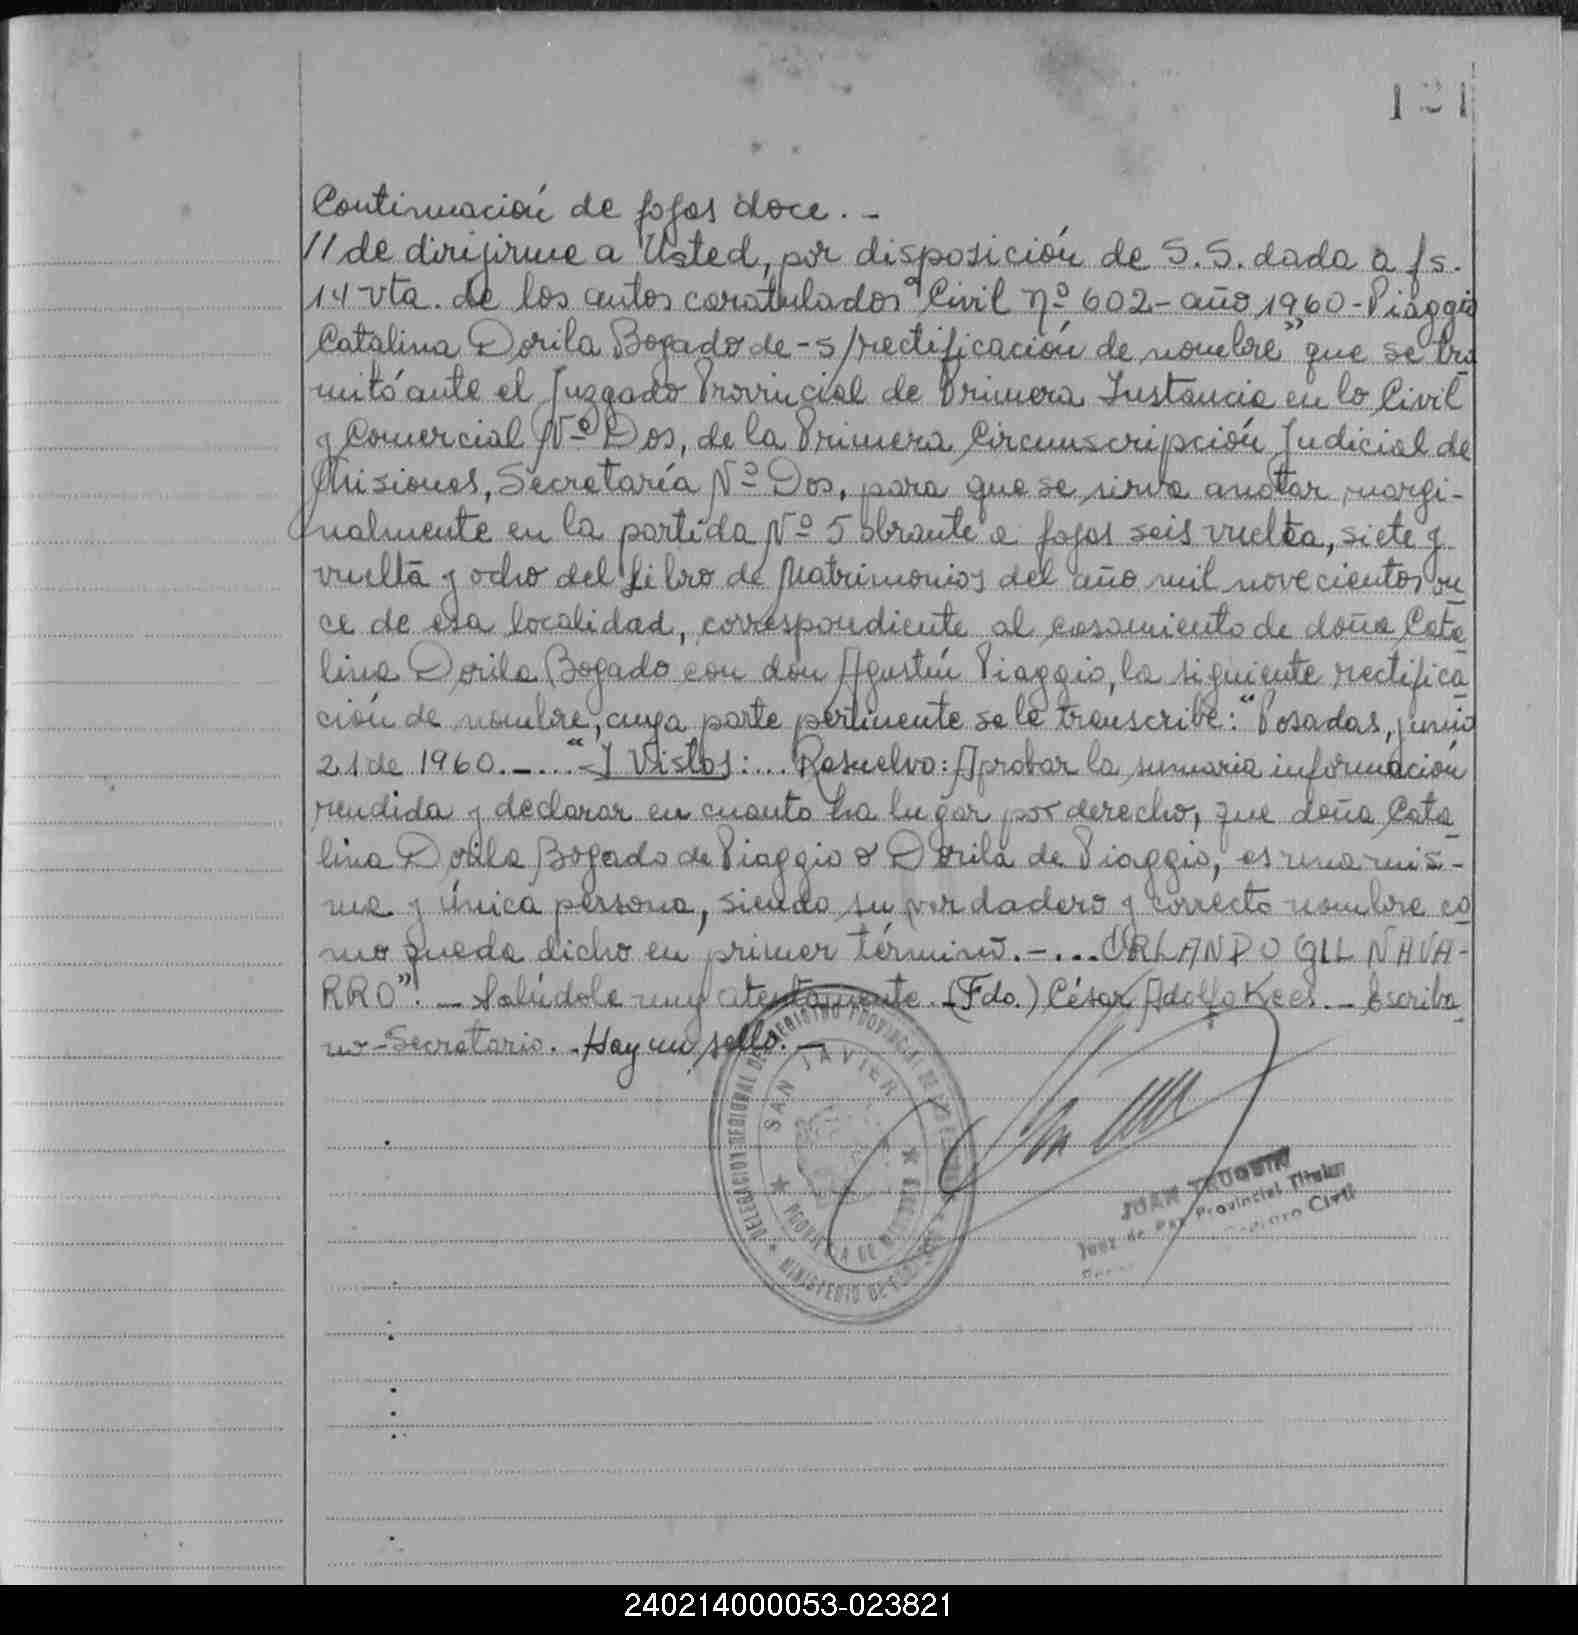 121
Continuación de fojas doce. -
// de dirijirme a Usted, por disposición de S.S. dada a fs.
14 vta. de los autos caratulados "Civil Nº 602 - año 1960 - Piaggio
Catalina Dorila Bogado de - s/rectificación de nombre" que se tra
mitó ante el Juzgado Provincial de Primera Instancia en lo Civil
y Comercial Nº Dos, de la Primera Circunscripción Judicial de
Misiones, Secretaría Nº Dos, para que se sirva anotar margi-
nalmente en la partida Nº 5 obrante a fojas seis vuelta, siete y
vuelta y ocho del Libro de Matrimonios del año mil novecientos on
ce de esa localidad, correspondiente al casamiento de doña Cata
lina Dorila Bogado con don Agustín Piaggio, la siguiente rectifica
ción de nombre, cuya parte pertinente se le transcribe: "Posadas, junio
21 de 1960. -... "Y Vistos:... Resuelvo: Aprobar la sumaria información
rendida y declarar en cuanto ha lugar por derecho, que doña Cata
lina Dorila Bogado de Piaggio o Dorila de Piaggio, es una mis-
ma y única persona, siendo su verdadero y correcto nombre co
mo queda dicho en primer término. -... ORLANDO GIL NAVA-
RRO". - Salúdole muy atentamente. - (Fdo.) César Adolfo Kees. - Escriba
no-Secretario. - Hay un sello. -
DELEGACION REGIONAL DEL REGISTRO PROVINCIAL DE LAS PERSONAS
SAN JAVIER
PROVINCIA DE MISIONES
MINISTERIO DE GOBIERNO
JUAN TRUQUIN
Juez de Paz Provincial Titular
Registro Civil
240214000053-023821